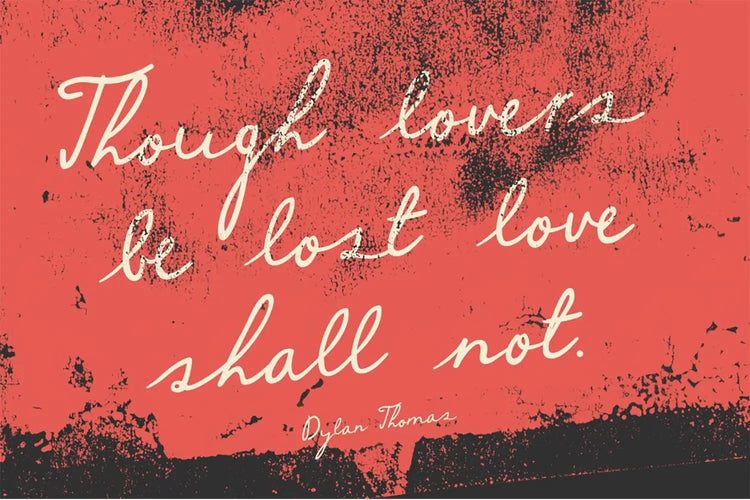 Though lovers
be lost love
shall not.
Dylan Thomas